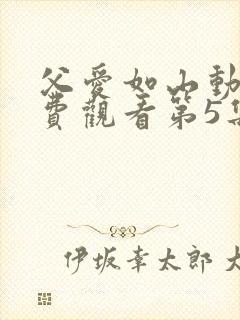 父愛如山動
費觀看第5集
伊坂幸太郎 大